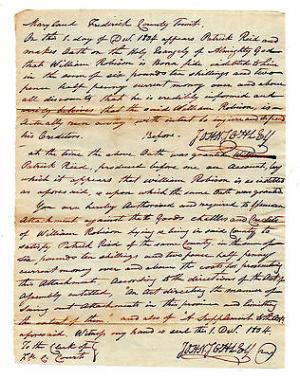 Maryland Frederick County Towit.
On the 1. day of Decr. 1804 appears Patrick Reid and
makes Oath on the Holy Evangely of Almighty God
that William Robison is Bona fide indebted to him
in the sum of six pounds ten shillings and two
pence half penny current money over and above
all discounts, that he is credibly informed and
verily believes that the said William Robison, is
actually runing away with intent to injure and defraud
his Creditors. Before
at the time the above Oath was granted
Patrick Reid, produced before me an Account, by
which it appears that William Robison is so indebted
as aforesaid, & upon which the same Oath was granted
You are hereby Authorised and required to
Attachment against the Goods chattles and Credits
of William Robison lying & being in said County to
satisfy Patrick Reid of the same County, in the sum of
six pounds ten shillings and two pence half penny
current money over and above the costs for prosecuting
this Attachment. According to the direction of the Act of
Assembly entitled, An act directing the manner of
Suing out attachments in this province and limiting
the extent of them and also of a Supplement to the Act
aforesaid. Witness my hand and seal the 1. Decr. 1804.
To the Clerk of